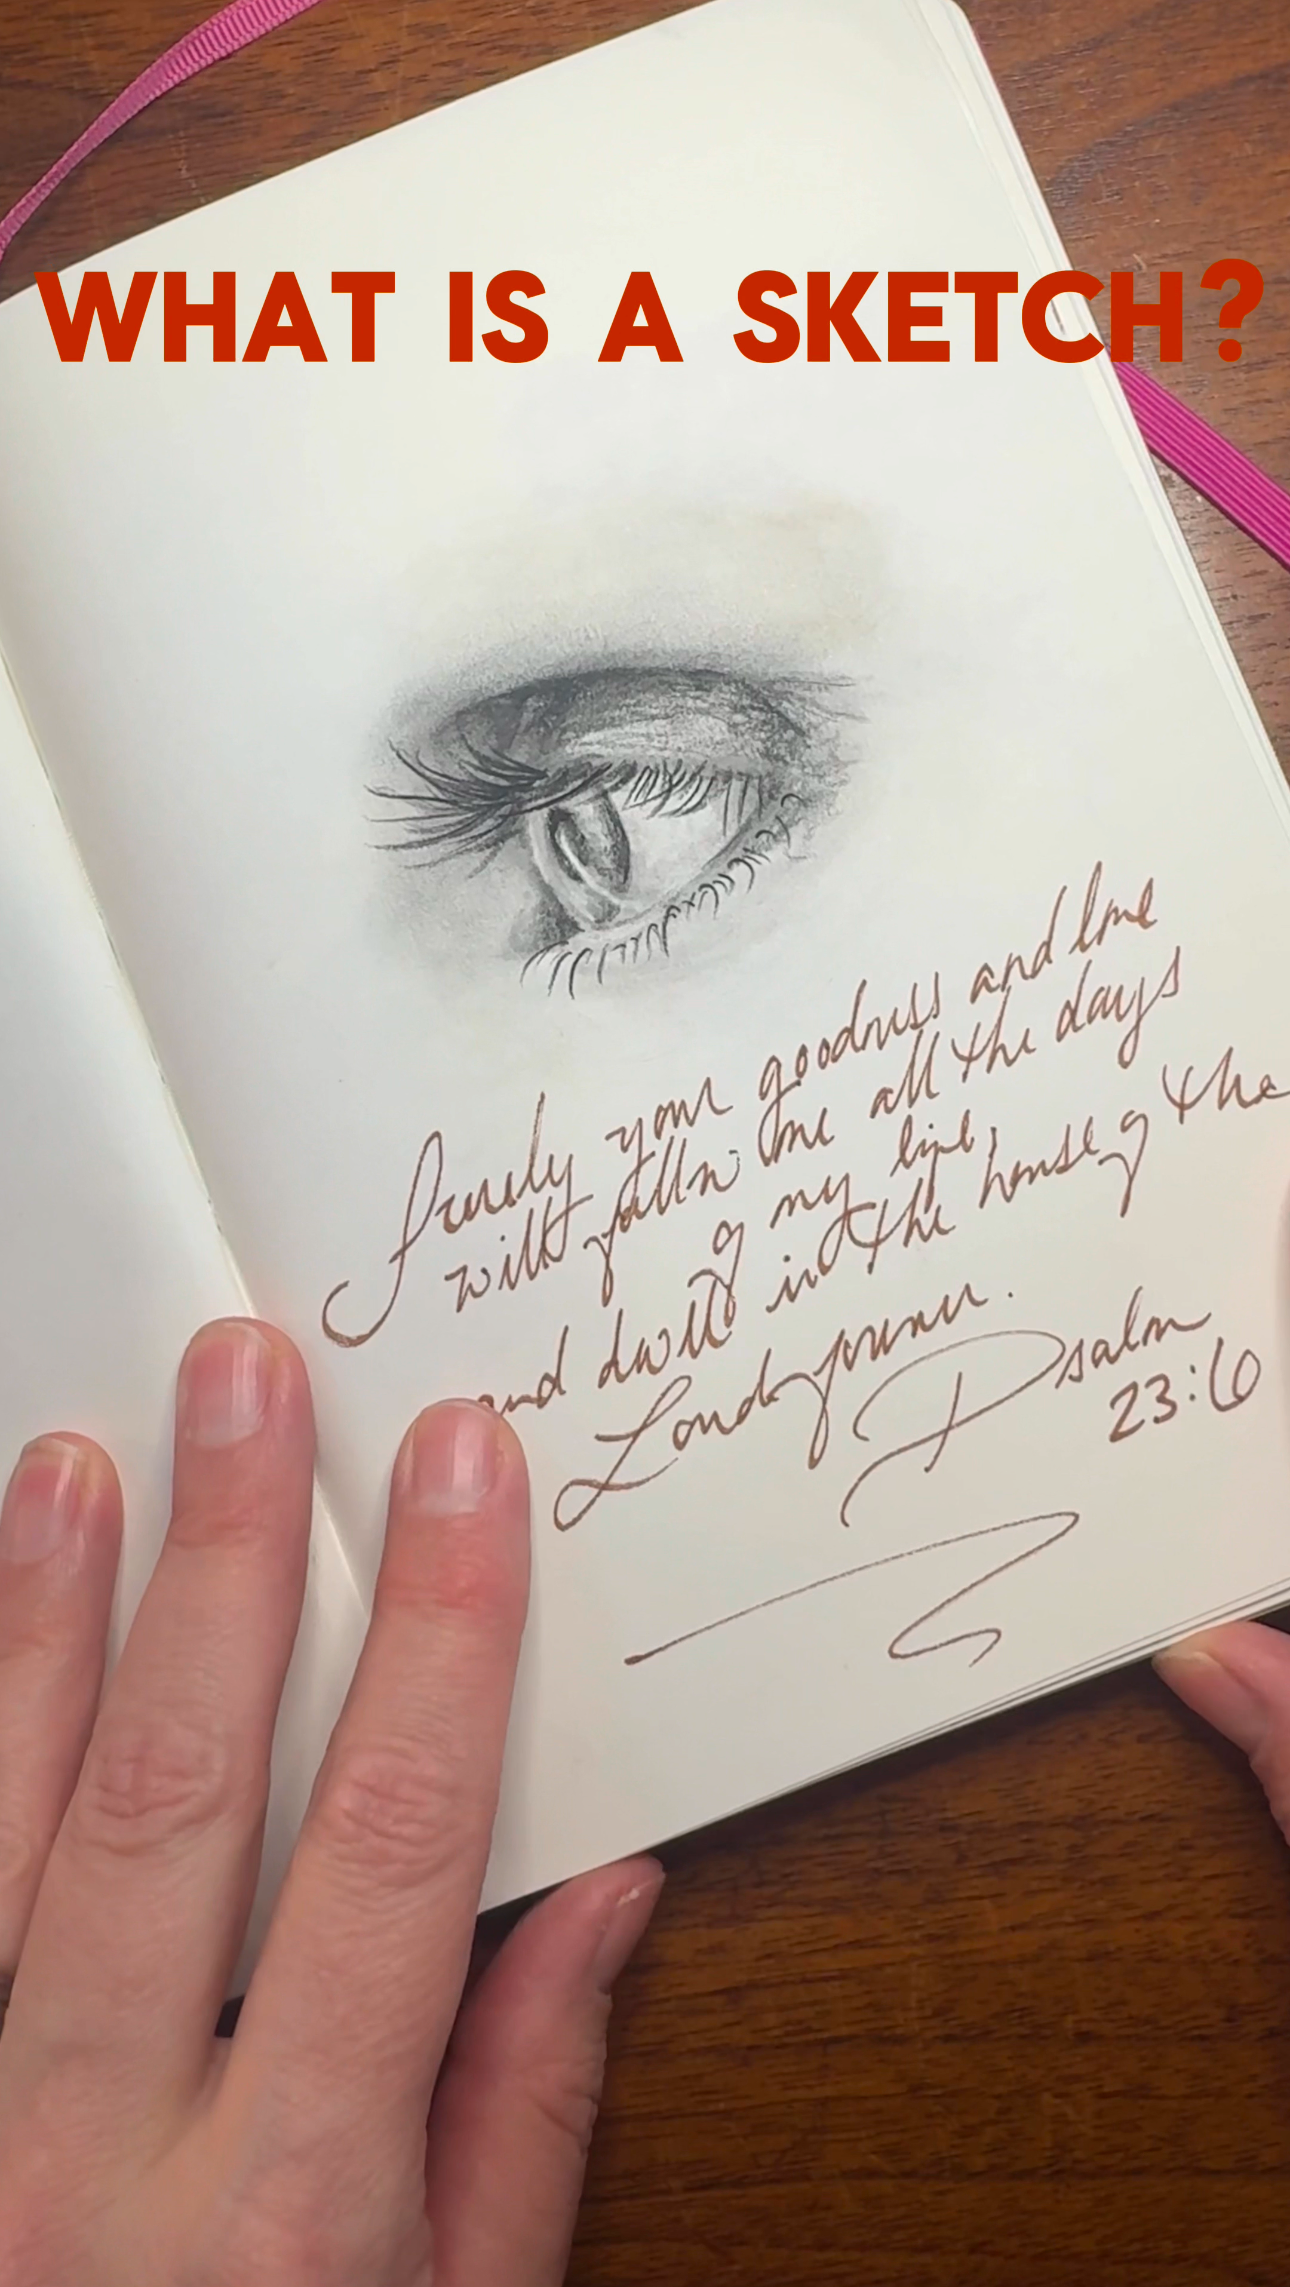 WHAT IS A SKETCH?
Surely your goodness and love
will follow me all the days
of my life,
and dwell in the house of the
Lord forever.
Psalm
23:6